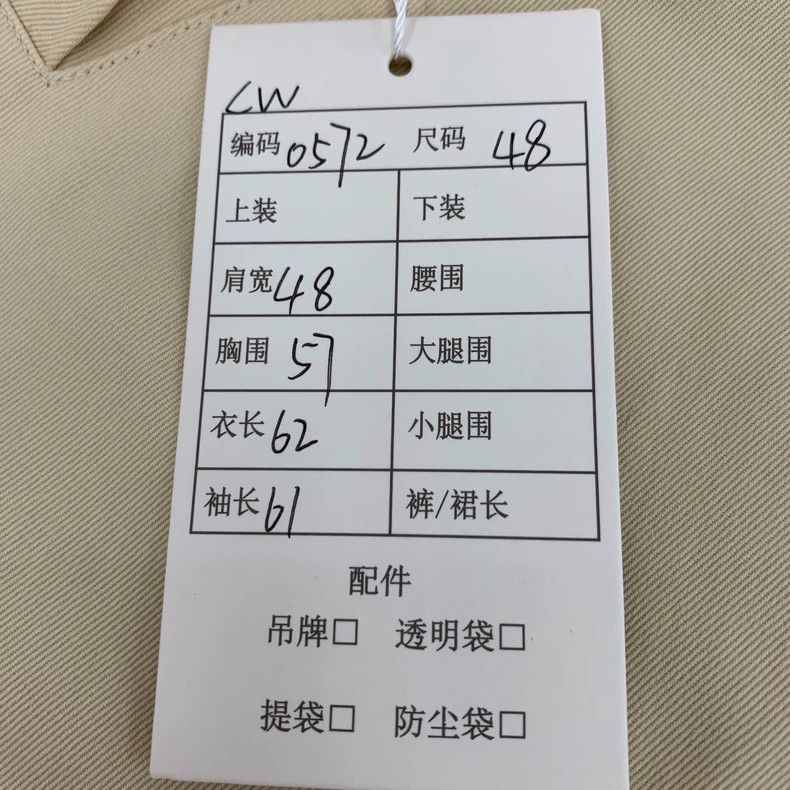 LW
编码 0572 尺码 48
上装 下装
肩宽 48 腰围
胸围 57 大腿围
衣长 62 小腿围
袖长 61 裤/裙长
配件
吊牌□ 透明袋□
提袋□ 防尘袋□